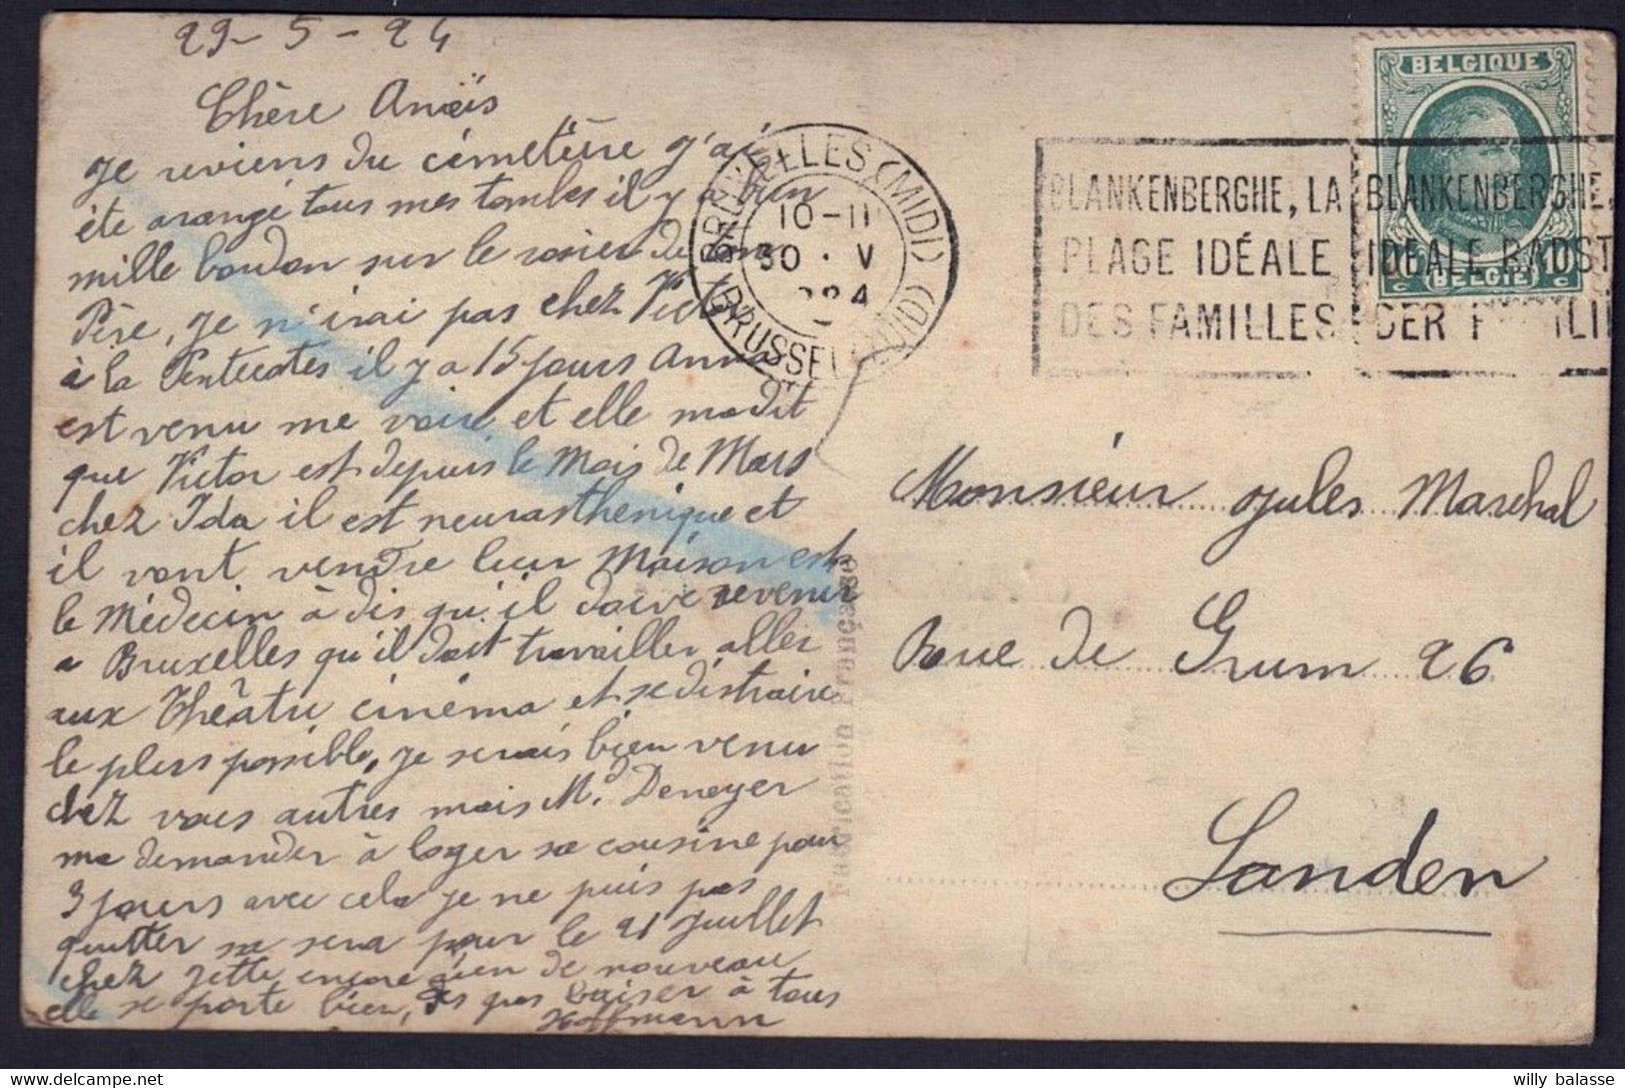 29-5-24
Chère Anaïs
Je reviens du cémetière j'ai
éte arangé tous mes tombes il y a bien
mille boudon sur le rosier de
Père, Je n'irai pas chez Victor
à la Pentecotes il y a 15 jours Anna
est venu me voir et elle ma dit
que Victor est depuis le Mois de Mars
chez Ida il est neurasthenique et
il vont vendre leur Maison est
le Médecin à dis qu'il doive revenir
a Bruxelles qu'il doit travailler aller
aux Théâtre cinéma et se distraire
le plus possible, je serais bien venu
chez vous autres mais Md. Deneyer
ma demander à loger sa cousine pour
3 jours avec cela je ne puis pas
quitter sa sera pour le 21 juillet
chez Jette encore rien de nouveau
elle se porte bien, gros baiser à tous
Hoffmann
BRUXELLES (MIDI)
BRUSSEL (ZUID)
10-11
30 . V
924
BLANKENBERGHE, LA
PLAGE IDÉALE
DES FAMILLES
BLANKENBERGHE,
IDEALE BADST
DER F MILII
BELGIQUE
10 c
BELGIË
Monsieur Jules Marechal
Rue de Grum 26
Landen
Fabrication Française
willy balasse